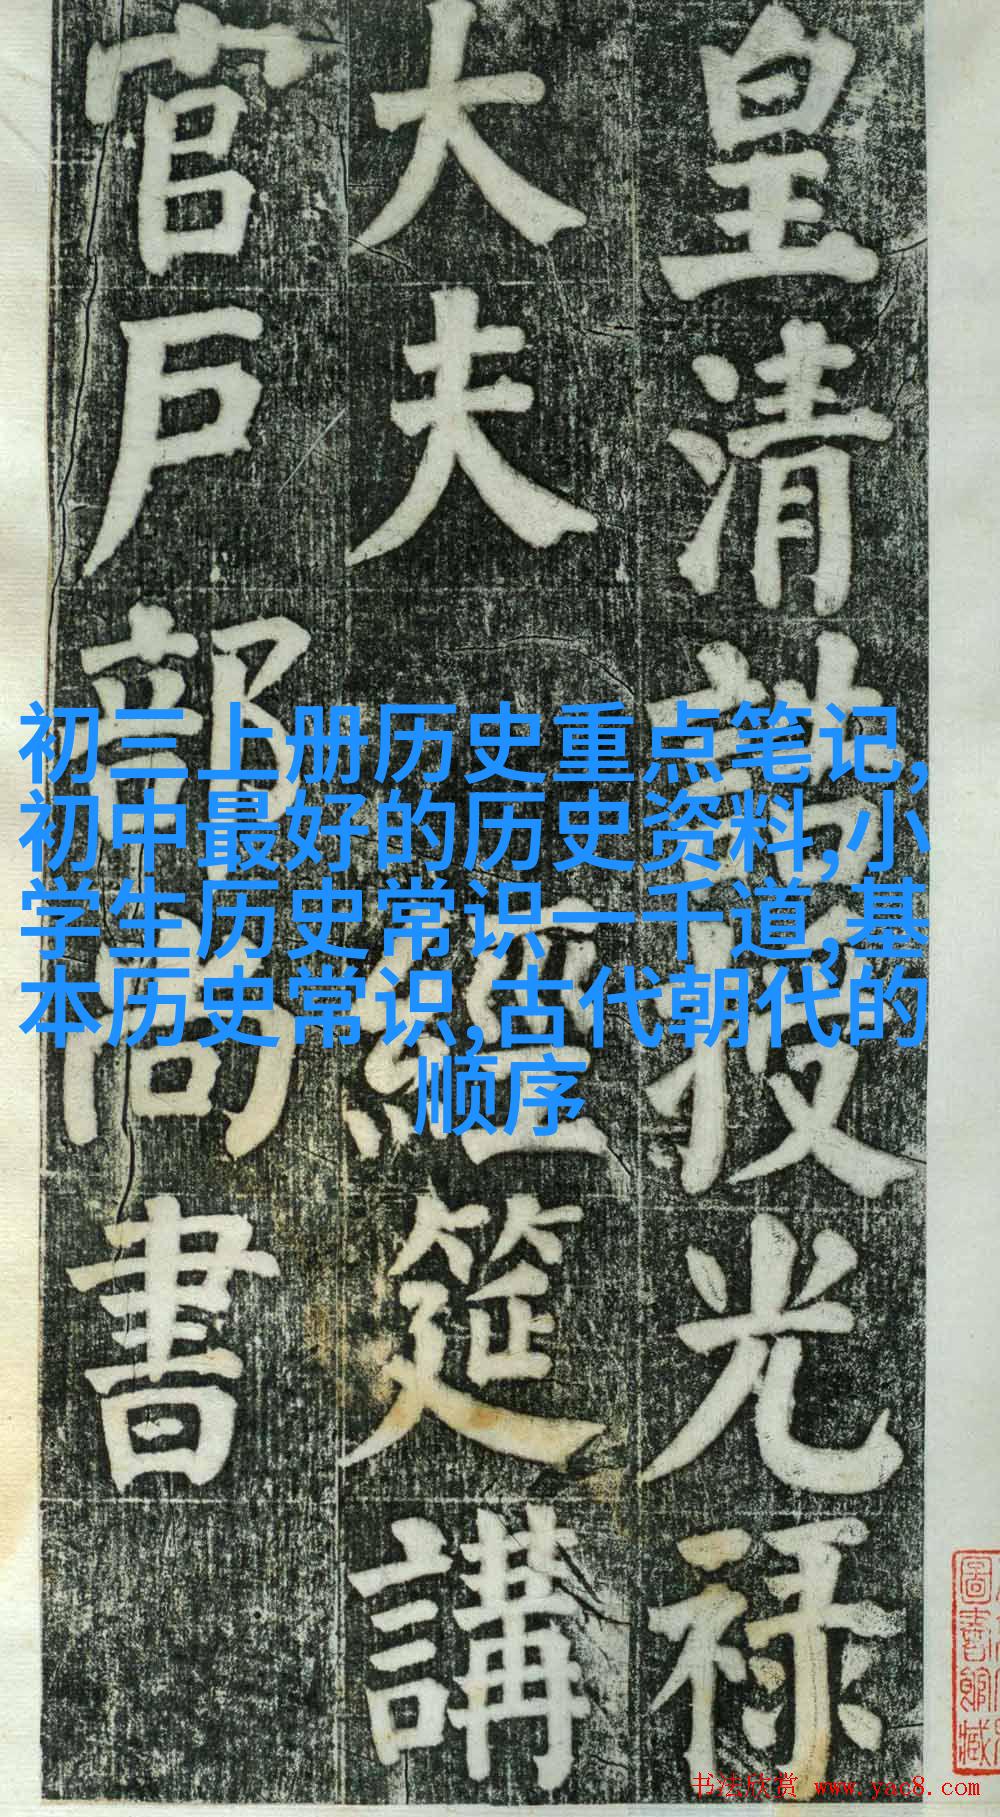 皇清誥授光祿
大夫經筵講
官戶部尚書
初三上册历史重点笔记,
初中最好的历史资料,小
学生历史常识一千道,基
本历史常识,古代朝代的
顺序
圖書館藏
书法欣赏 www.yac8.com